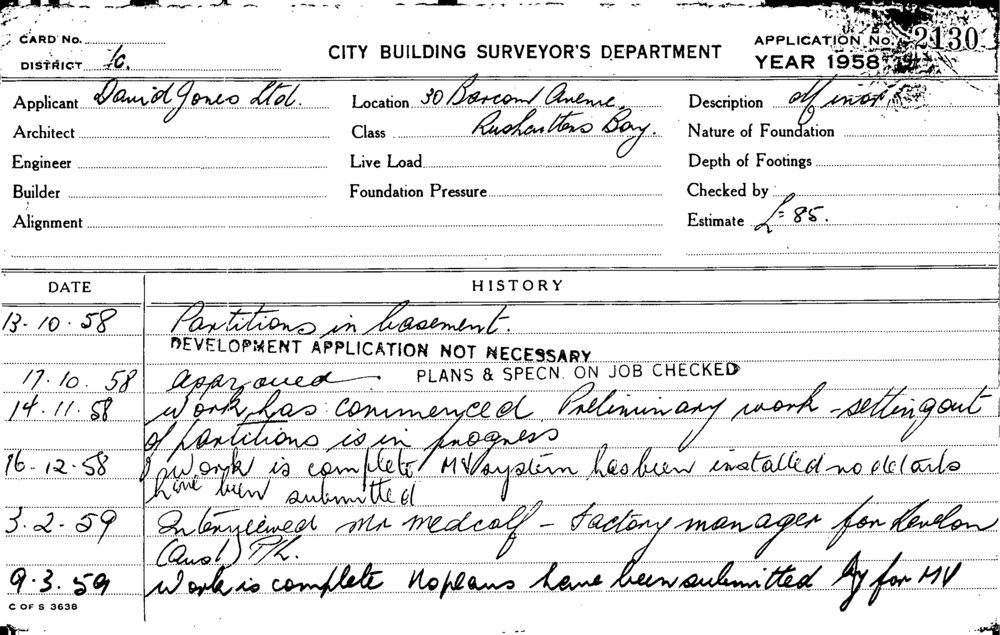 CARD No.
DISTRICT
CITY BUILDING SURVEYOR'S DEPARTMENT
APPLICATION No. 2130
YEAR 1958
Applicant David Jones Ltd.
Location 30 Barcom Avenue,
Description
Architect
Class Rushcutters Bay.
Nature of Foundation
Engineer
Live Load
Depth of Footings
Builder
Foundation Pressure
Checked by
Alignment
Estimate £85.
DATE HISTORY
13.10.58 Partitions in basement.
DEVELOPMENT APPLICATION NOT NECESSARY
17.10.58 Approved PLANS & SPECN. ON JOB CHECKED
14.11.58 Work has commenced Preliminary work - setting out
of partitions is in progress
16-12-58 work is complete MV system has been installed no details
have been submitted
3.2.59 Interviewed Mr Medcalf - Factory manager for
(Aust) P/L.
9.3.59 Work is complete No plans have been submitted for MV
C OF S 3638